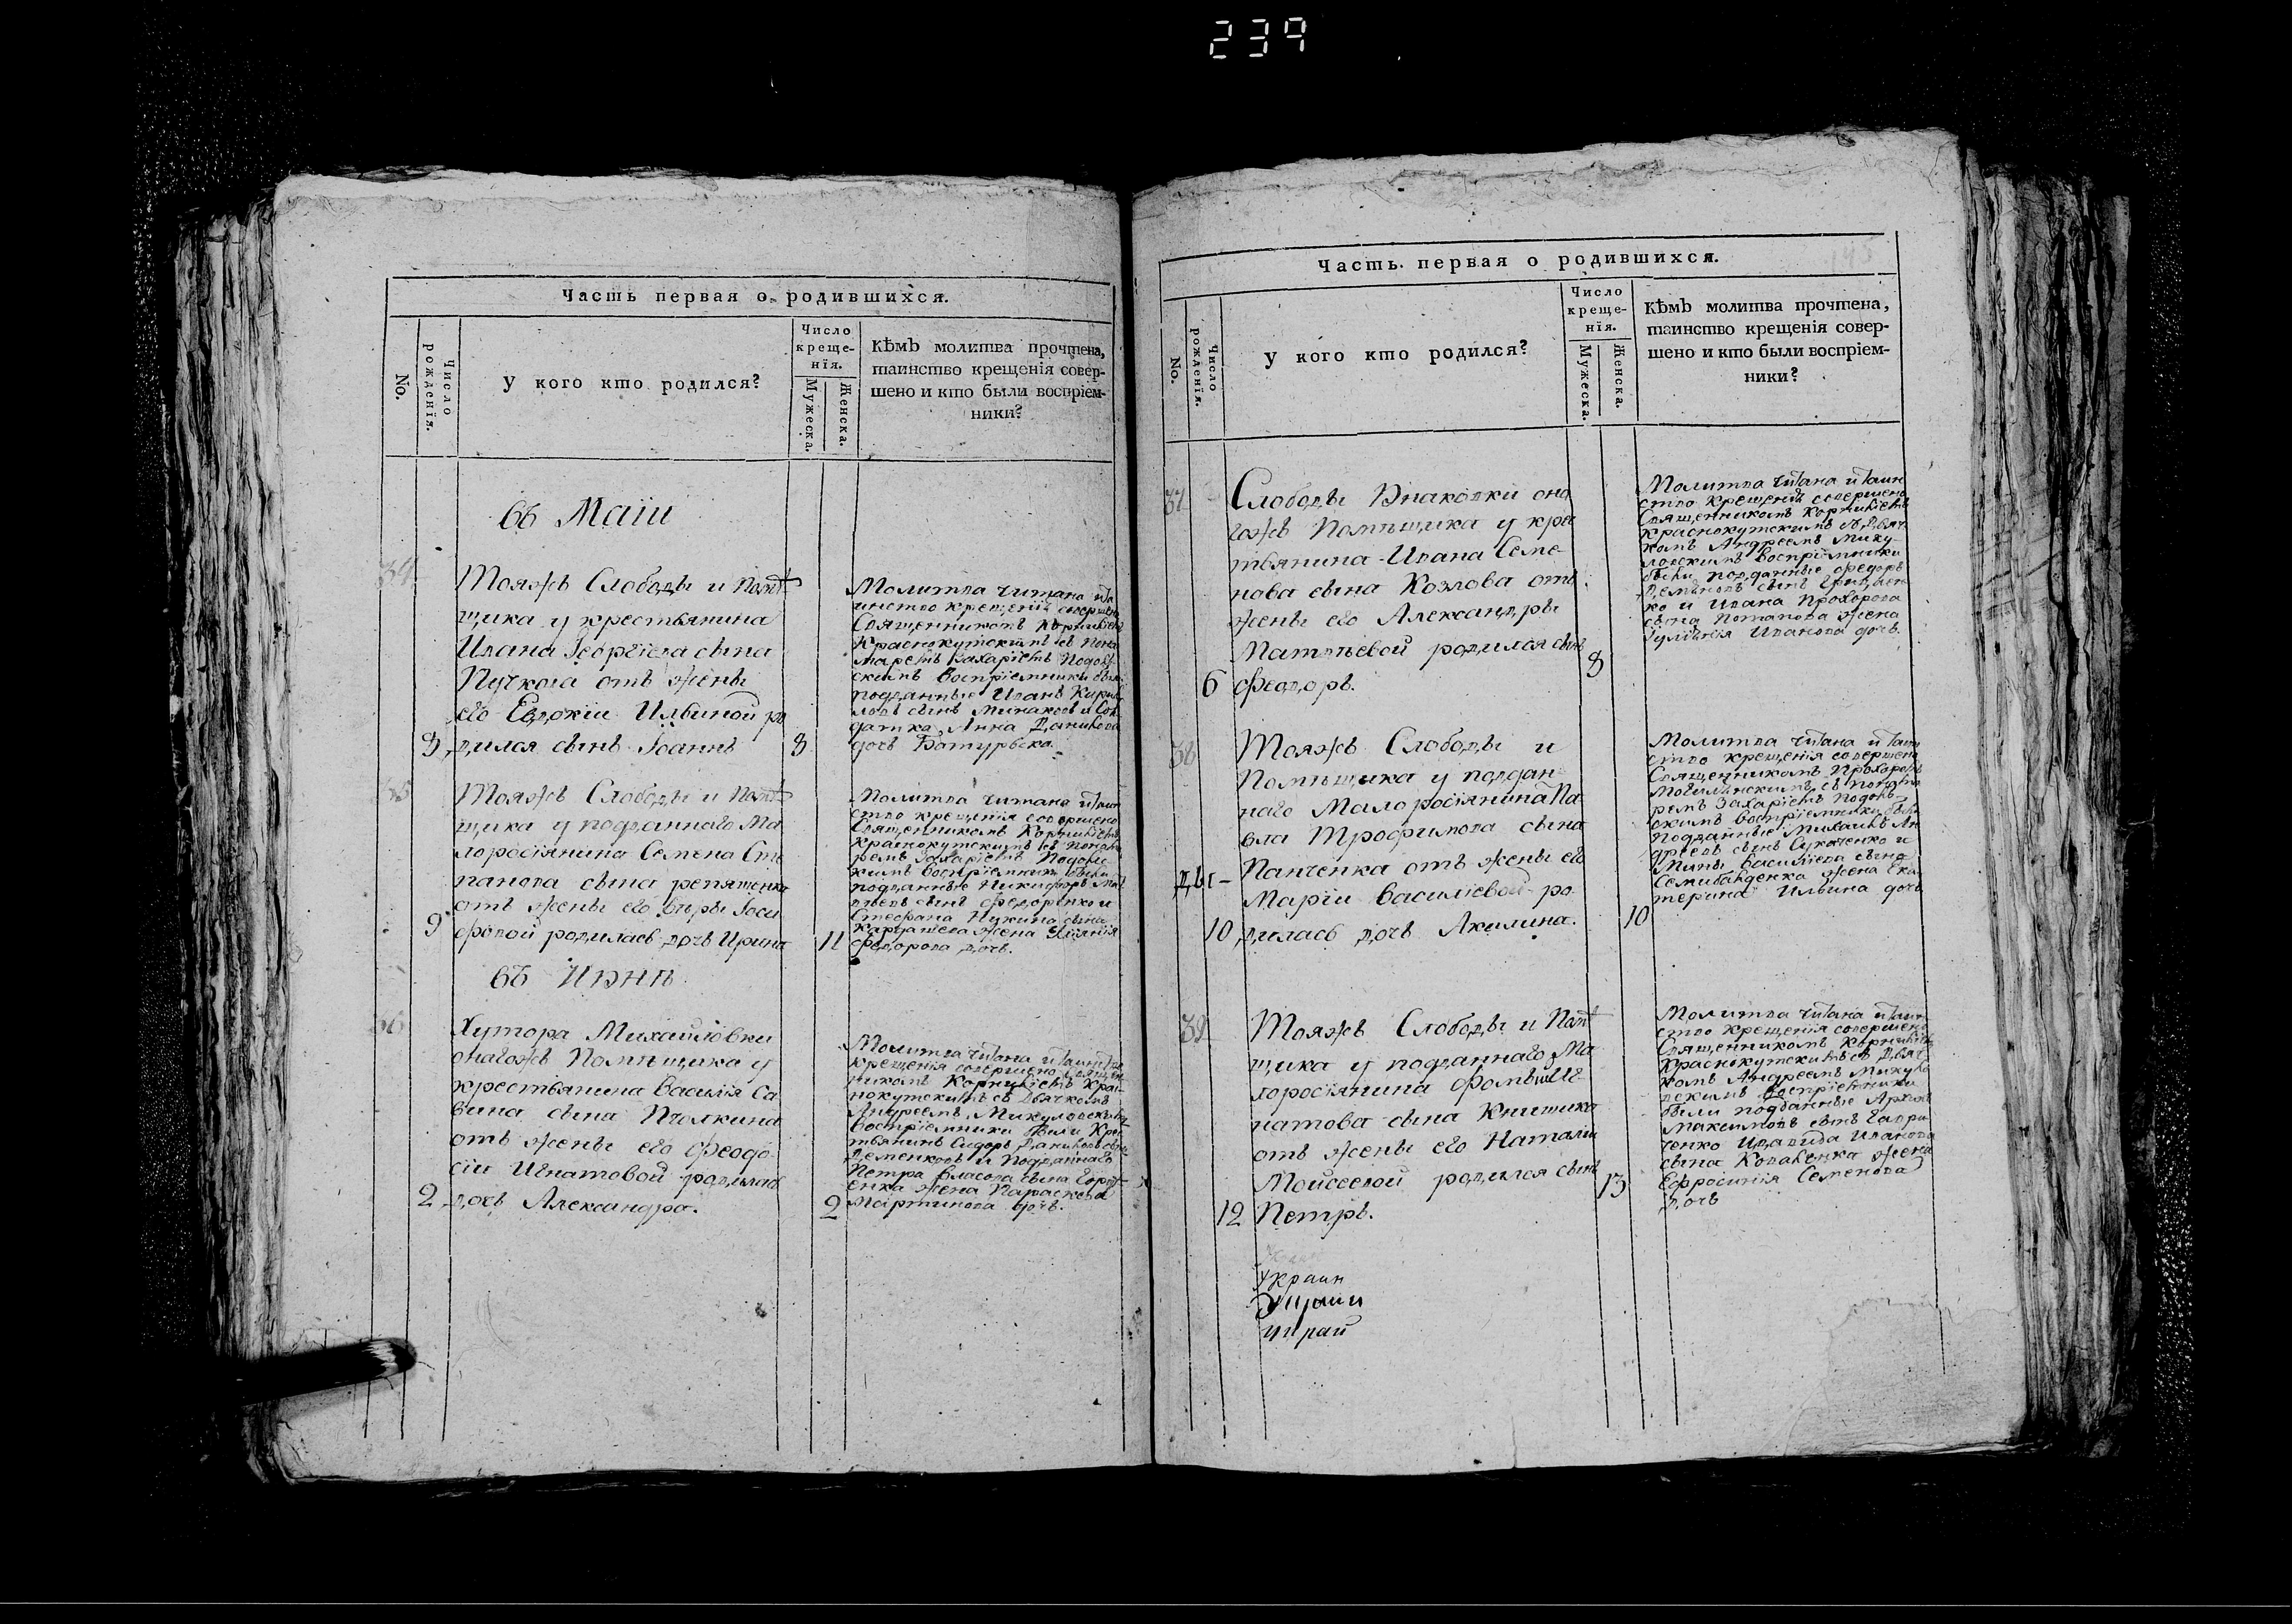 239
Часть первая о родившихся.
No.
Число рожденія.
У кого кто родился?
Число крещенія.
Мужеска.
Женска.
Кѣмъ молитва прочтена,
таинство крещенія совер-
шено и кто были воспріем-
ники?
въ Маіи
34
Тояжъ Слободы и Помѣ
щика у крестьянина
Ивана Георгіева сына
Пучкова отъ жены
его Евдокіи Ильиной ро
8 дился сынъ Іоаннъ 8
Молитва читана и та
инство крещенія совершено
Священникомъ Корниліемъ
Краснокутскимъ съ Поно
маремъ Захаріемъ Подоль
скимъ воспріемники были
подданные Иванъ Кирил
ловъ сынъ Минаковъ и Сол
датка Анна Данилова
дочь
35
Тояжъ Слободы и Помѣ
щика у подданнаго Ма
лоросіянина Семена Сте
панова сына Репятенка
отъ жены его Вѣры Іоси
9 фовой родилась дочь Ирина 11
Молитва читана и таин
ство крещенія совершено
Священникомъ Корниліемъ
Краснокутскимъ съ Понома
ремъ Захаріемъ Подоль
скимъ воспріемники были
подданные Никифоръ
сынъ Федоренко и
Стефана сына
жена
Федорова дочь.
въ Іюнѣ
36
Хутора Михайловки
онагожъ Помѣщика у
крестьянина Василія Са
вина сына Пчолкина
отъ жены его Феодо
сіи Игнатовой родилась
2 дочь Александра. 2
Молитва читана и таинство
крещенія совершено Священ
никомъ Корниліемъ Крас
нокутскимъ съ Дьячкомъ
Андреемъ Микуловскимъ
воспріемники были Крес
тьянинъ Сидоръ Даниловъ сынъ
Деменковъ и подданнаго
Петра Власова сына
жена Параскева
Мартинова дочь.
Часть первая о родившихся.
195
No.
Число рожденія.
У кого кто родился?
Число крещенія.
Мужеска.
Женска.
Кѣмъ молитва прочтена,
таинство крещенія совер-
шено и кто были воспріем-
ники?
37
Слободы Знаковки она
гожъ Помѣщика у крес
тьянина Ивана Семе-
нова сына Козлова отъ
жены его Александры
Матвѣевой родился сынъ 8
6 Феодоръ.
Молитва читана и таин
ство крещенія совершено
Священникомъ Корниліемъ
Краснокутскимъ съ Дьяч
комъ Андреемъ Мику-
ловскимъ воспріемники
были подданные Федоръ
сынъ Гриценко
и Ивана Прохорова
сына Потапова жена
Іуліянія Иванова дочь.
38
Тояжъ Слободы и
Помѣщика у поддан
наго Малоросіянина Па
вла Трофимова сына
Панченка отъ жены его
Маріи Василіевой ро
10 дилась дочь Акилина. 10
Молитва читана и таин
ство крещенія совершено
Священникомъ Прохоромъ
Могилянскимъ съ Понома
ремъ Захаріемъ Подоль
скимъ воспріемники были
подданные Михаилъ Ан
дреевъ сынъ Сукаченко и
Василіева сына
жена Ека
терина Ильина дочь
39
Тояжъ Слободы и Помѣ
щика у подданнаго Ма
лоросіянина Фомы Иг
натова сына Книшика
отъ жены его Наталіи
Моисеевой родился сынъ 13
12 Петръ.
Молитва читана и таин
ство крещенія совершено
Священникомъ Корниліемъ
Краснокутскимъ съ Дьяч
комъ Андреемъ Микуло
вскимъ воспріемники
были подданные Архипъ
Максимовъ сынъ Гаври
ченко и Давида Иванова
сына Коваленка жена
Ефросинія Семенова
дочь
Украин